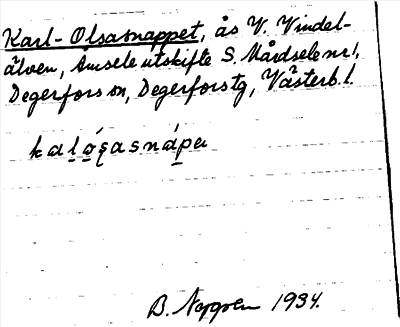 Karl-Olsasnappet, ås V. Vindel-
älven, Åmsele utskifte S. Mårdsele nr 1,
Degerfors sn, Degerforstg, Västerb. l.
B. 1934.